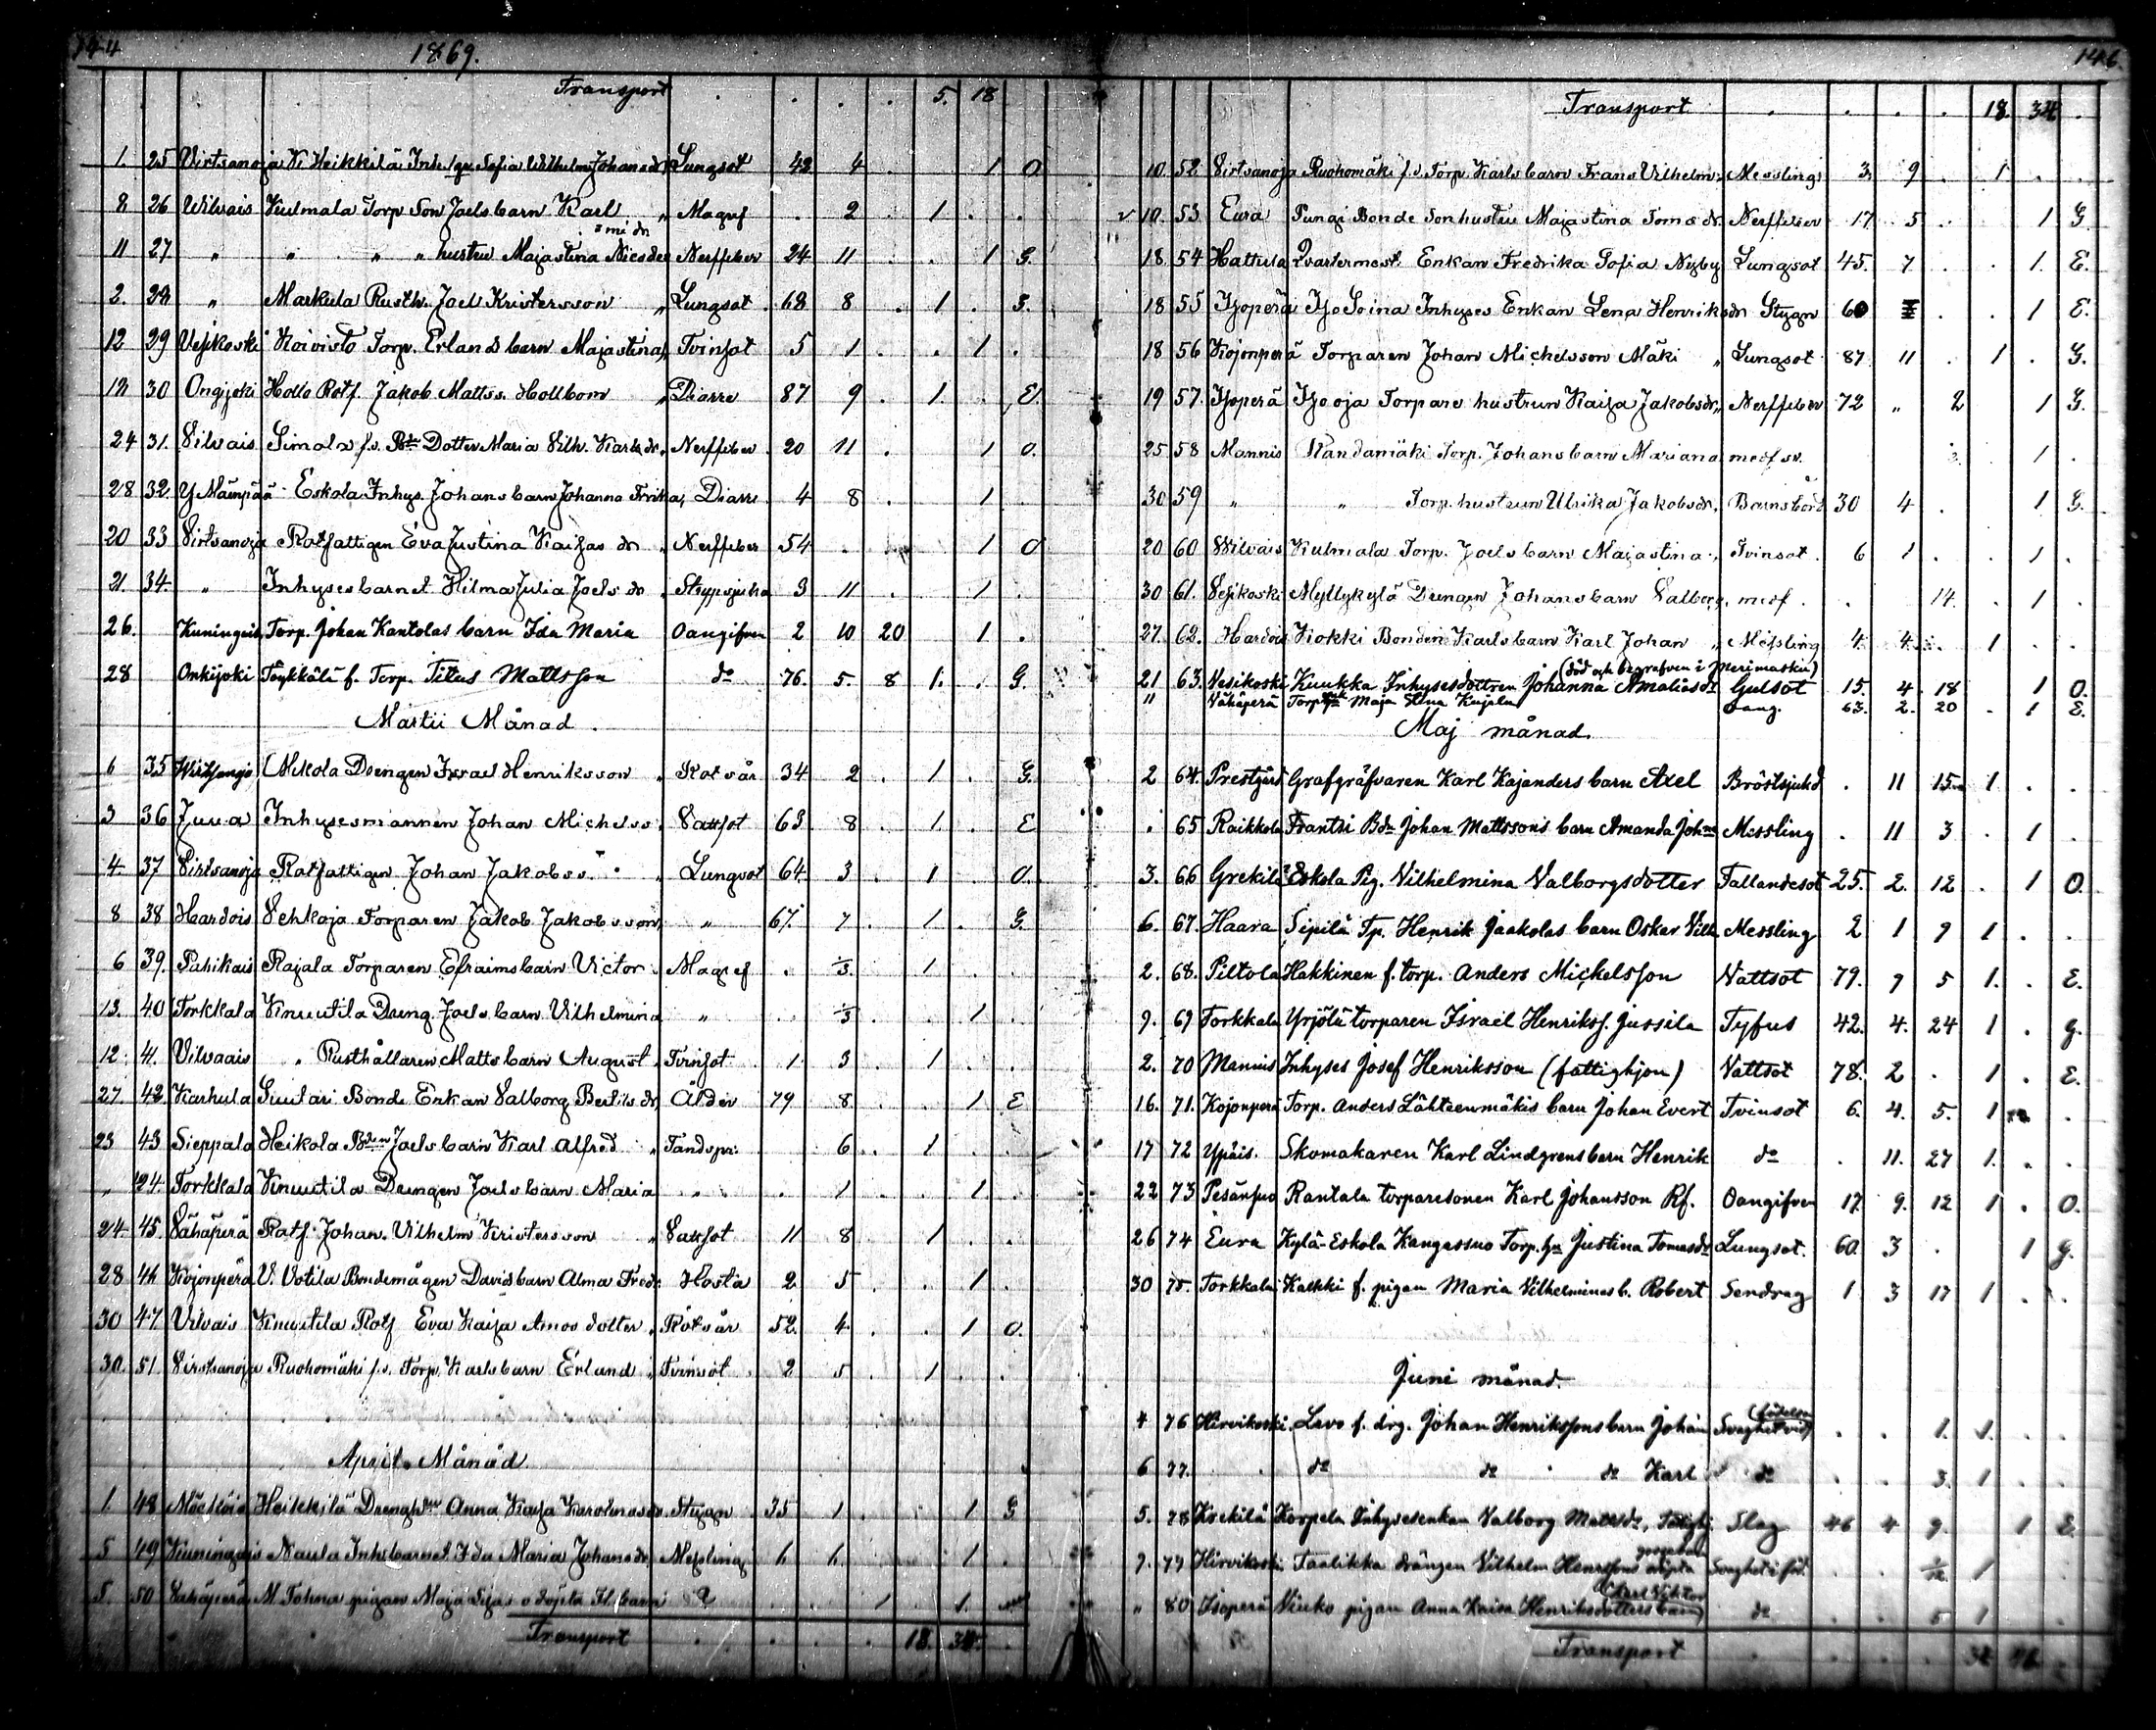 144 1869.
Transport . . . . 5. 18
1. 25 Virtsanoja V. Heikkilä Inh. Sofia Wilhelm. Johansdr Lungsot 43 4 1 O
8 26 Wilvais Kulmala Torp Son Joels barn Karl " Magref . 2 . 1 . .
11 27 " " " " hustru Majastina Nicsdr Nerffeber 24 11 . . 1 G.
2. 28 " Markula Rusth. Joel Kristersson " Lungsot . 68 8 . 1 . G.
12 29 Vesikoski Koivisto Torp. Erlands barn Majastina, Tvinsot 5 1 . . 1 .
12 30 Ongijoki Hollo Rotf. Jakob Mattss. Hollbom " Diarre 87 9 . 1 . E.
24 31. Vilvais Simola f.v. Bde Dotter Maria Vilh. Karlsdr. Nerffeber 20 11 . 1 O.
28 32. Y Mäenpää Eskola Inhys. Johans barn Johanna Frika, Diarre 4 8 . 1 .
20 33 Virtsanoja Rotfattigen Eva Justina Kaijas dr . Nerffeber 54 . . 1 O
21. 34. " Inhyses barnet Hilma Julia Joels dr . Strypsjuka 3 11 . 1 .
26. Kuninguis Torp. Johan Kantolas barn Ida Maria Oangifven 2 10 20 1 .
28 Onkijoki Töykkälä f. Torp. Titus Mattsson do 76. 5. 8 1. . G.
Martii Månad.
6 35 Virtsanoja Mikola Drengen Israel Henriksson . Rotsår 34 2 . 1 . G.
3 36 Juva Inhysesmannen Johan Michelss. Vattsot 63 8 . 1. . E
4. 37 Virtsanoja Rotfattigen Johan Jakobss. " Lungsot 64. 3 . 1 . O.
8 38 Hardois Vehkaja Torparen Jakob Jakobsson, " 67. 7 . 1 . G.
6 39. Pahikais Rajala Torparen Efraims barn Victor . Magref . 1/3 . 1 .
13. 40 Torkkala Knuutila Dreng. Joels barn Vilhelmina " . 1/3 . . 1 .
12 41. Vilvaais " Rusthållaren Matts barn August . Tvinsot . 1. 3 . 1 .
27 42. Karhula Suutari Bonde Enkan Valborg Bertils dr, Ålder 79 8 . . 1 E
23 43 Sieppala Heikola Bden Joels barn Karl Alfred . Tandspr. 6 . 1 .
" 44. Torkkala Knuutila Drengen Joels barn Maria " . 1 . . 1. .
24. 45. Vähäperä Rotf. Johan Vilhelm Kristersson " Vattsot 11 8 1 .
28 46 Kojonperä V. Votila Bondemågen Davids barn Alma Fredr. Hosta 2. 5 . . 1 .
30 47. Vilvais Knuutila Rotf Eva Kaija Amos dotter . Rötsår 52. 4. . . 1 O.
30. 51. Virtsanoja Ruohomäki f.v. Torp. Karls barn Erland . Tvinsot . 2 5 . 1 .
April Månad.
1. 48 Heikkilä Dreng Anna Kaija Karolinasdr. Stygn 35 1 . . 1 G
5 49 Kuninguis Naula Inh. barnet Ida Maria Johansdr. Messling 6. . . 1 .
5. 50 Vähäperä M. Tohna pigan Maja odöpta Fl. barn ? . . 1 . 1.
Transport . . . . 18. 34.
146.
Transport . . . . 18. 34. .
10. 52 Virtsanoja Ruohomäki f.v. Torp Karls barn Frans Vilhelm. Messling 3. 9 . 1 . .
10. 53 Eura Pungi Bonde Sonhustru Majastina Toms dr. Nerffeber 17 5 . . 1 G.
18. 54 Hattula Qvartermest. Enkan Fredrika Sofia Nyby Lungsot 45. 7 . . 1. E.
18 55 Isoperä Iso Soina Inhyses Enkan Lena Henriksdr Stygn 60 . . 1 E.
18 56 Kojonperä Torparen Johan Michelsson Mäki " Lungsot 87. 11 . 1 . G.
19 57. Isoperä Iso oja Torpare hustrun Kaija Jakobsdr, Nerffeber 72 " 2 1 G.
25 58 Mannis Kandamäki Torp. Johans barn Mariana medf sv. . 1 .
30 59 " " Torp. hustrun Ulrika Jakobsdr, Barnsbörd 30 4 . . 1 G.
20 60 Wilvais Kulmala Torp. Joels barn Majastina . Tvinsot . 6 1 . . 1 .
30 61. Vesikoski Myllykylä Drengen Johans barn Valborg. medf. . 14. . 1 .
27. 62. Hardois Kokki Bonden Karls barn Karl Johan " Messling 4. 4. . 1 .
(död och begrafven i Merimasku)
21 63. Vesikoski Kuukka Inhysesdottren Johanna Amaliasdr Gulsot 15. 4. 18 1 O.
" Vähäperä Torp Maja Lena Kujala Oang. 63. 2. 20 . 1 E.
Maj månad.
2 64. Prestgård Grafgräfvaren Karl Kajanders barn Axel Bröstsjukd . 11 15 1 .
. 65 Raikkola Frantsi Bds Johan Mattssons barn Amanda Johna Messling . 11 3 . 1 .
3. 66 Grekilä Eskola Pig. Vilhelmina Valborgsdotter Fallandesot 25. 2. 12 . 1 O.
6. 67. Haara Sipilä Tp. Henrik Jaakolas barn Oskar Vilh. Messling 2 1 9 1 . .
2. 68. Piltola Hakkinen f. torp. Anders Michelsson Vattsot 79. 7 5 1. . E.
9. 69 Torkkala Yrjölä torparen Israel Henrikss. Jussila Tyfus 42. 4. 24 1 . g.
2. 70 Mannis Inhyses Josef Henriksson (fattighjon) Vattsot 78. 2 . 1 . E.
16. 71. Kojonperä Torp. Anders Lähteenmäkis barn Johan Evert Tvinsot 6. 4. 5. 1 .
17 72 Ypäis. Skomakaren Karl Lindgrens barn Henrik do . 11. 27 1. . .
22 73 Pesänsuo Rantala torparesonen Karl Johansson Rf. Oangifven 17 9. 12 1 . O.
26 74 Eura Kylä-Eskola Kangassuo Torp. hu Justina Tomasdr Lungsot. 60. 3 . 1 g.
30 75. Torkkala Kalkki f. pigan Maria Vilhelminas b. Robert Sendrag 1 3 17 1 . .
Juni månad.
4 76 Hirvikoski Levo f. drg. Johan Henrikssons barn Johan Svaghet vid (födelsen . . 1. 1.
6 77. . do do do Karl do . . 3. 1 .
5. 78 Krekilä Korpela Inhysesenkan Valborg Mattsdr, Slag 46 4 9. 1 E.
7. 79 Hirvikoski Taalikka drängen Vilhelm Henrikssons odöpta gossebarn Svaghet i föd. . . 1/12 1
" 80 Isoperä Niuko pigan Anna Kaisa Henriksdotters barn Karl Viktor do . . 5 1 .
Transport